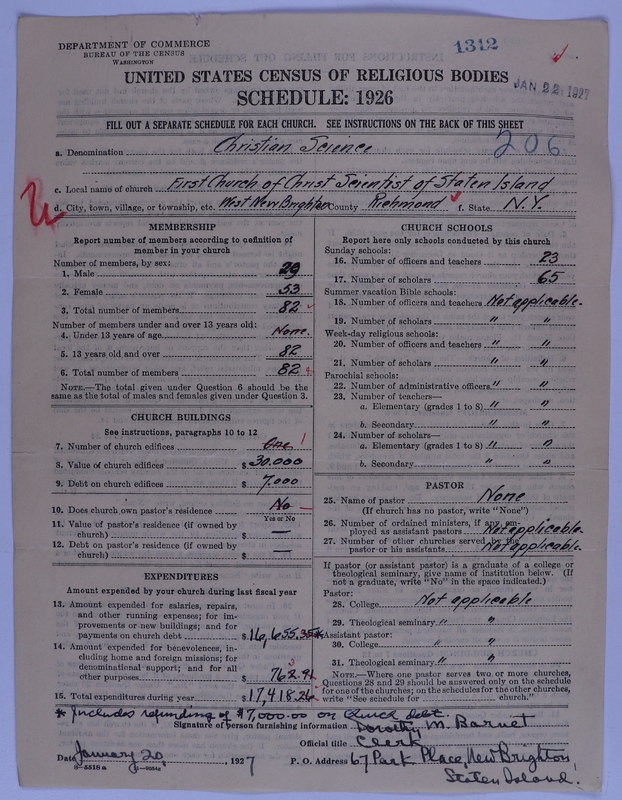 DEPARTMENT OF COMMERCE
BUREAU OF THE CENSUS
WASHINGTON
1312
UNITED STATES CENSUS OF RELIGIOUS BODIES
JAN 22 1927
SCHEDULE: 1926
FILL OUT A SEPARATE SCHEDULE FOR EACH CHURCH. SEE INSTRUCTIONS ON THE BACK OF THIS SHEET
a. Denomination Christian Science 206
c. Local name of church First Church of Christ Scientist of Staten Island
d. City, town, village, or township, etc. West New Brighton County Richmond f. State N.Y.
MEMBERSHIP
Report number of members according to definition of
member in your church
Number of members, by sex:
1. Male 29
2. Female 53
3. Total number of members 82
Number of members under and over 13 years old:
4. Under 13 years of age None.
5. 13 years old and over 82
6. Total number of members 82
NOTE.—The total given under Question 6 should be the
same as the total of males and females given under Question 3.
CHURCH BUILDINGS
See instructions, paragraphs 10 to 12
7. Number of church edifices One 1
8. Value of church edifices $ 30.000
9. Debt on church edifices $ 7.000
10. Does church own pastor's residence No
Yes or No
11. Value of pastor's residence (if owned by
church) $ —
12. Debt on pastor's residence (if owned by
church) $ —
EXPENDITURES
Amount expended by your church during last fiscal year
13. Amount expended for salaries, repairs,
and other running expenses; for im-
provements or new buildings; and for
payments on church debt $ 16,655.35*
14. Amount expended for benevolences, in-
cluding home and foreign missions; for
denominational support; and for all
other purposes $ 762.91
3
15. Total expenditures during year $ 17,418.26
CHURCH SCHOOLS
Report here only schools conducted by this church
Sunday schools:
16. Number of officers and teachers 23
17. Number of scholars 65
Summer vacation Bible schools:
18. Number of officers and teachers Not applicable.
19. Number of scholars " "
Week-day religious schools:
20. Number of officers and teachers " "
21. Number of scholars " "
Parochial schools:
22. Number of administrative officers " "
23. Number of teachers—
a. Elementary (grades 1 to 8) " "
b. Secondary " "
24. Number of scholars—
a. Elementary (grades 1 to 8) " "
b. Secondary " "
PASTOR
25. Name of pastor None
(If church has no pastor, write "None")
26. Number of ordained ministers, if any, em-
ployed as assistant pastors Not applicable.
27. Number of other churches served by the
pastor or his assistants Not applicable.
If pastor (or assistant pastor) is a graduate of a college or
theological seminary, give name of institution below. (If
not a graduate, write "No" in the space indicated.)
Pastor:
28. College Not applicable
29. Theological seminary " "
Assistant pastor:
30. College " "
31. Theological seminary " "
NOTE.—Where one pastor serves two or more churches,
Questions 28 and 29 should be answered only on the schedule
for one of the churches; on the schedules for the other churches,
write "See schedule for church."
* Includes refunding of $7,000.00 on church debt.
Signature of person furnishing information Dorothy M. Barnet
Official title Clerk
Date January 20, 1927 P. O. Address 67 Park Place, New Brighton
Staten Island.